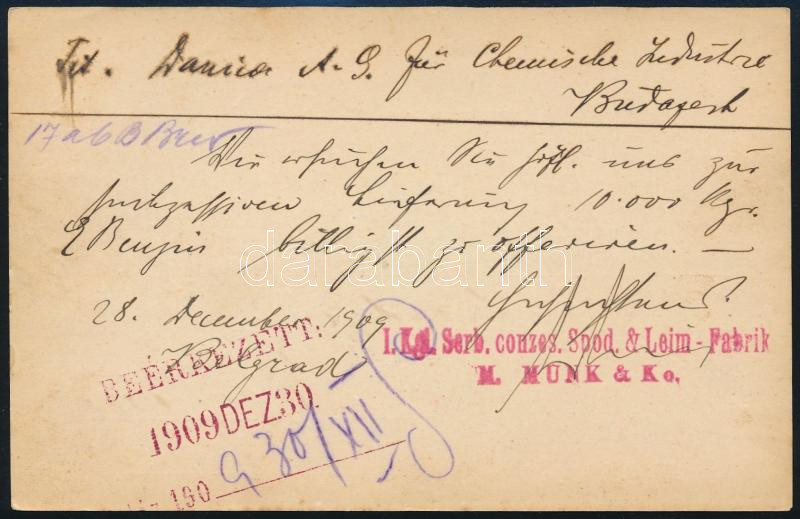 Tit. Danica A. G. für Chemische Industrie
Budapest
17
Wir ersuchen Sie höfl. uns zur
successiven Lieferung 10.000 Kgr.
Benzin billigst zu offeriren. —
28. December 1909
Belgrad
I. Kgl. Serb. conzes. Spod. & Leim - Fabrik
M. MUNK & Ko.
BEÉRKEZETT:
1909 DEZ 30
190
30/XII
darabanth